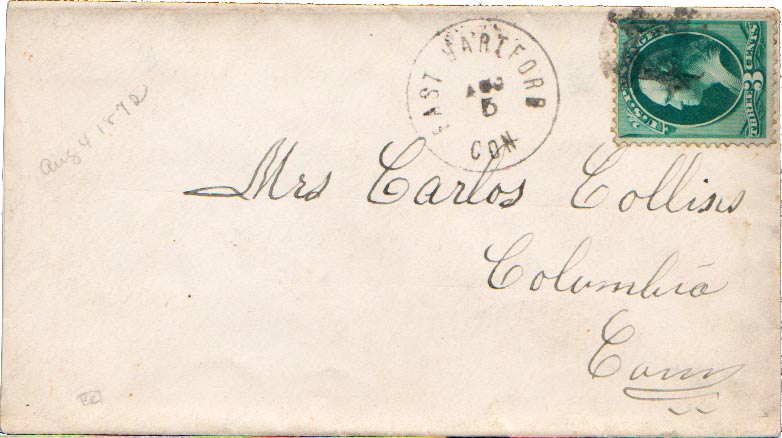 EAST HARTFORD
AUG
5
CON
Aug 4 1872
Mrs Carlos Collins
Columbia
Conn